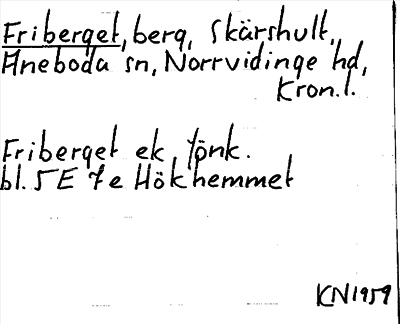 Friberget, berg, Skärshult,
Aneboda sn, Norrvidinge hd,
Kron.l.
Friberget ek Jönk.
bl. 5E 7e Hökhemmet
KN1959